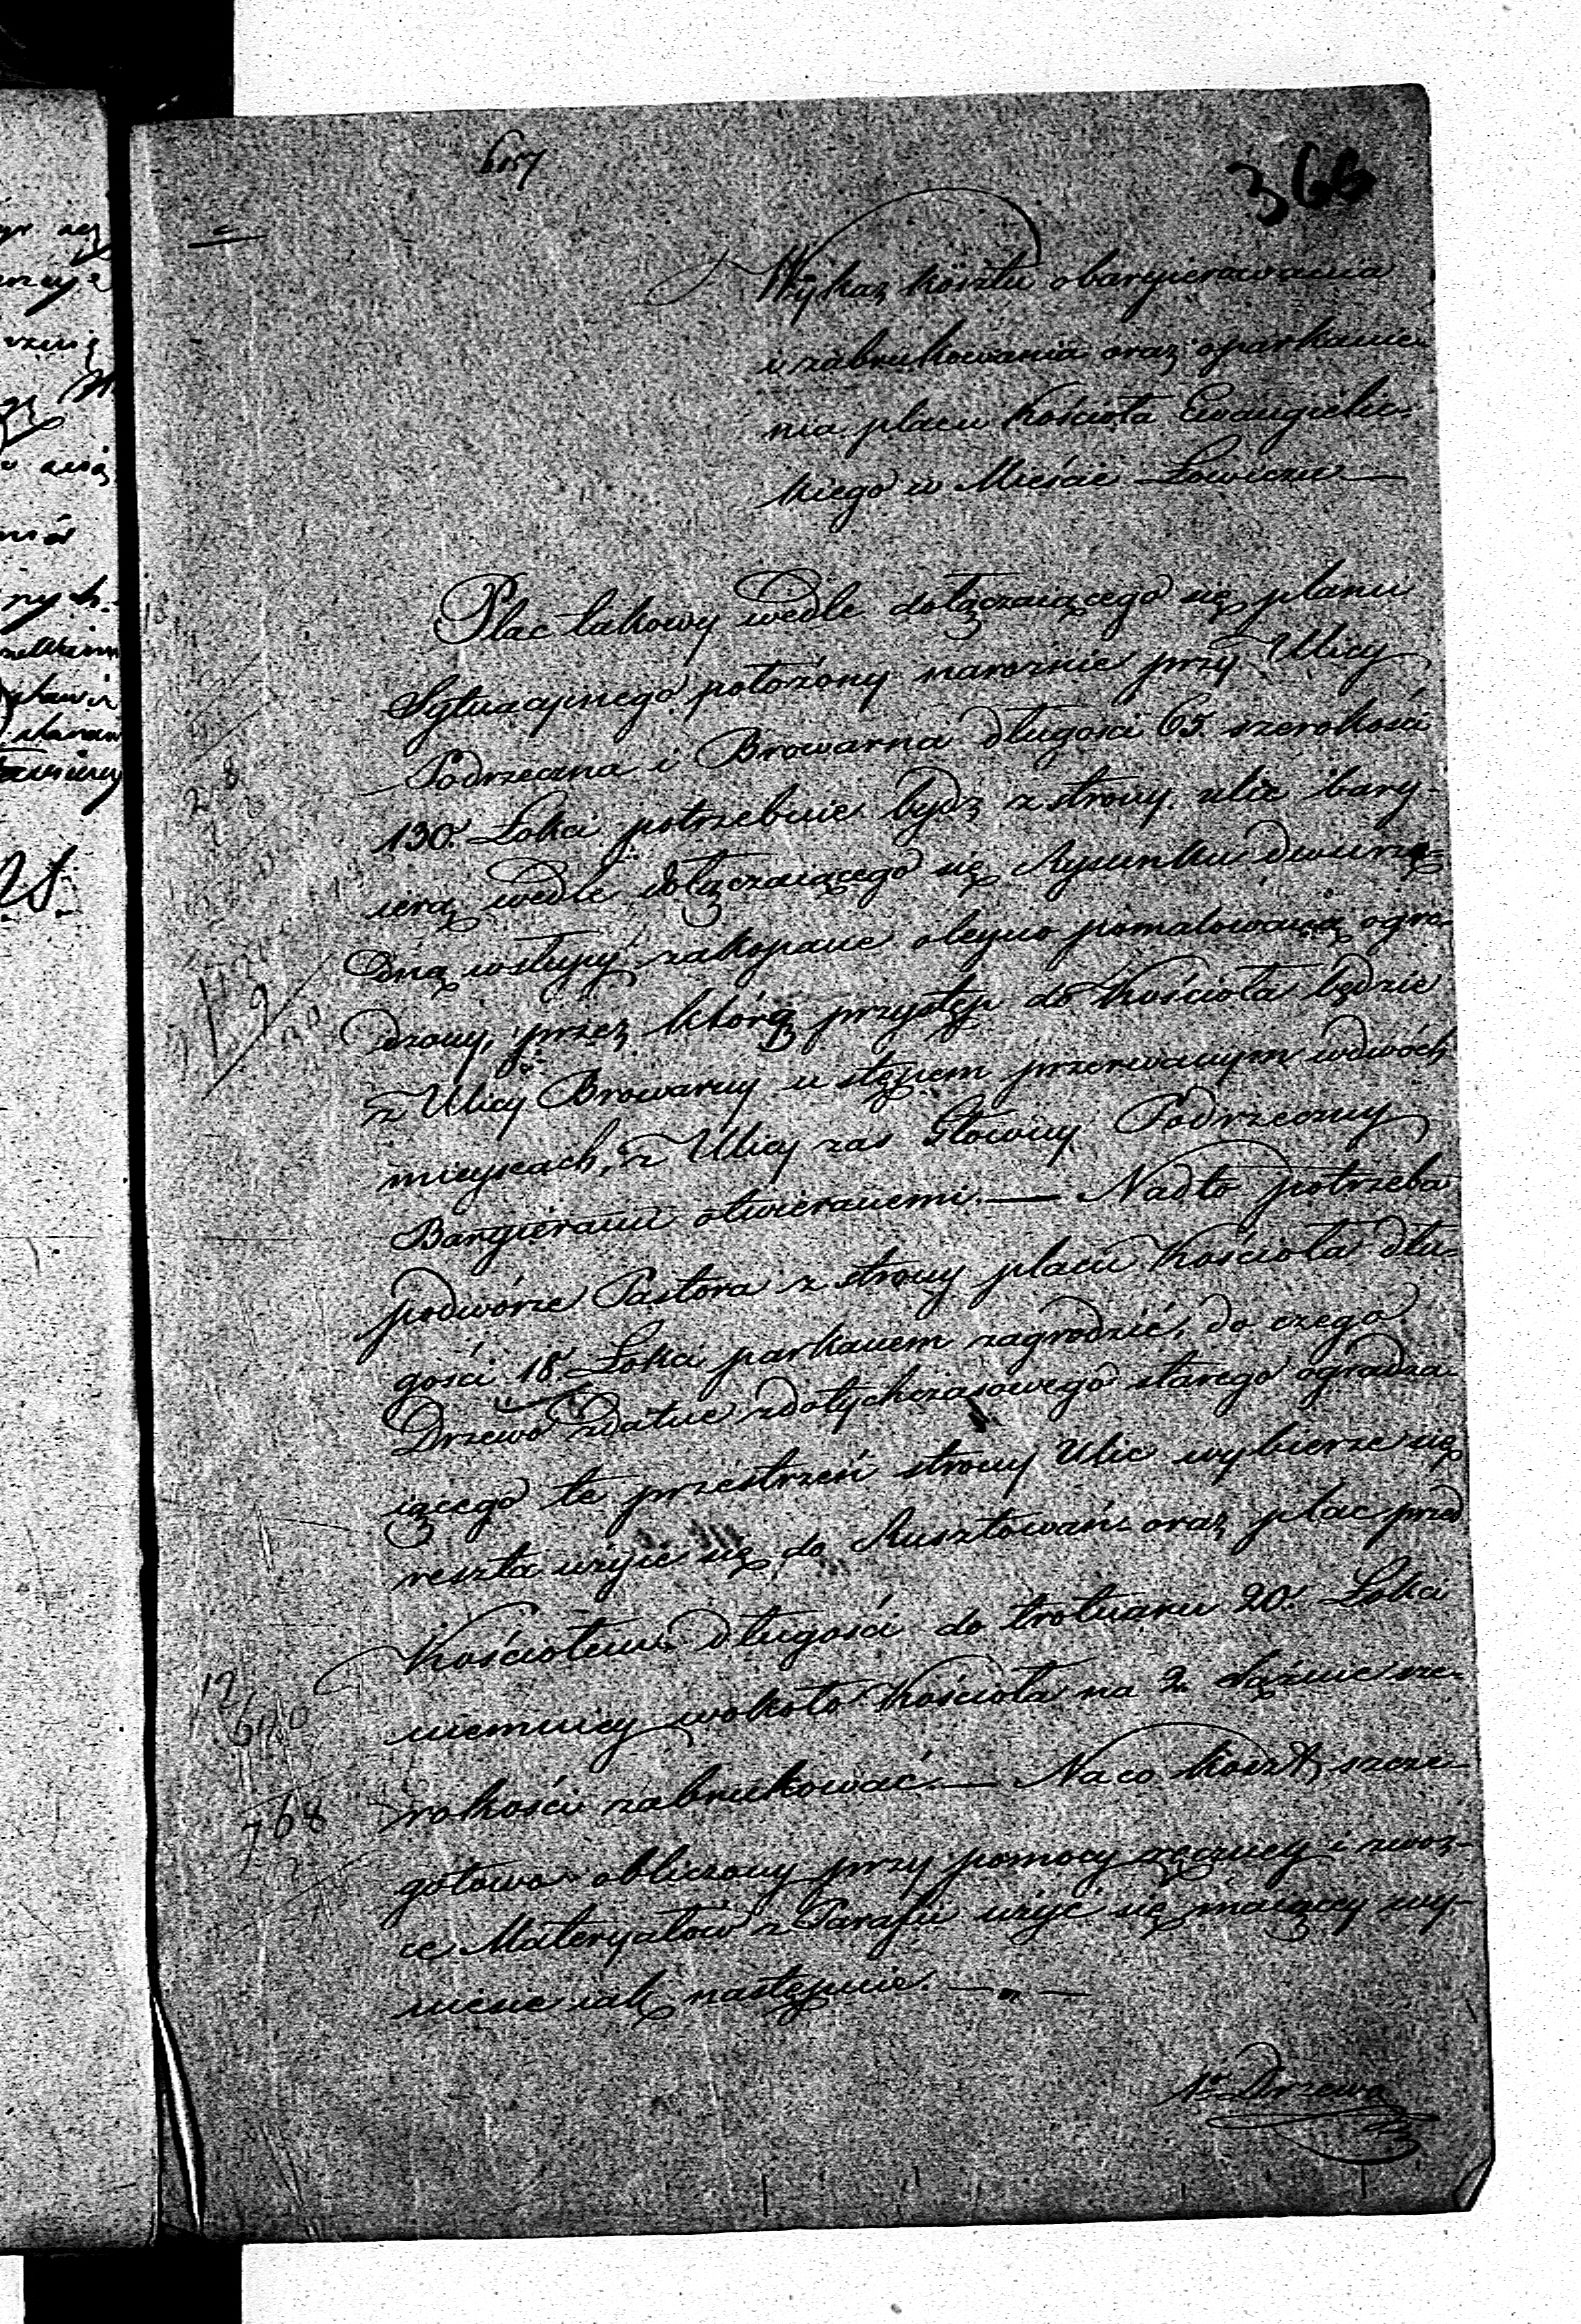 368
Wykaz kosztu obaryierowania
i zabrukowania oraz oparkanie-
nia placu Kościoła Ewangielic-
kiego w Mieście Łowiczu —
Plac takowy wedle dołączaiącego się planu
Sytuacyinego położony narożnie przy Ulicy
Podrzeczna i Browarna długości 65. szerokości
130. Łokci potrzebuie bydz z strony ulic bary-
ierą wedle dołączaiącego się Rysunku dwurzę-
dną wsłupy zakopane oleyno pomalowaną ogro-
dzony, przez którą przystęp do Kościoła będzie
z Ulicy Browarny ustępem przerwanym wdwóch
mieyscach, z Ulicy zas Głowny Podrzeczny
Baryierami otwieranemi. — Nadto potrzeba
podwórze Pastora z strony placu Kościoła dłu-
gości 18 Łokci parkanem zagrodzić, do czego
Drzewo zdatne zdotychczasowego starego ogradza-
iącego te przestrzeń strony Ulic wybierze się
reszta użyie się do Rusztowań oraz plac przed
Kościołem długości do trotuaru 20. Łokci
niemniey wokoło Kościoła na 2. sążnie sze-
rokości zabrukować. — Na co koszt, szcze-
gołowo obliczony przy pomocy ręczney i zwoz-
ce Materyałów z Parafii użyć się maiącey wy-
niesie iak następuie. — „ —
1o Drzewa
12
640
768